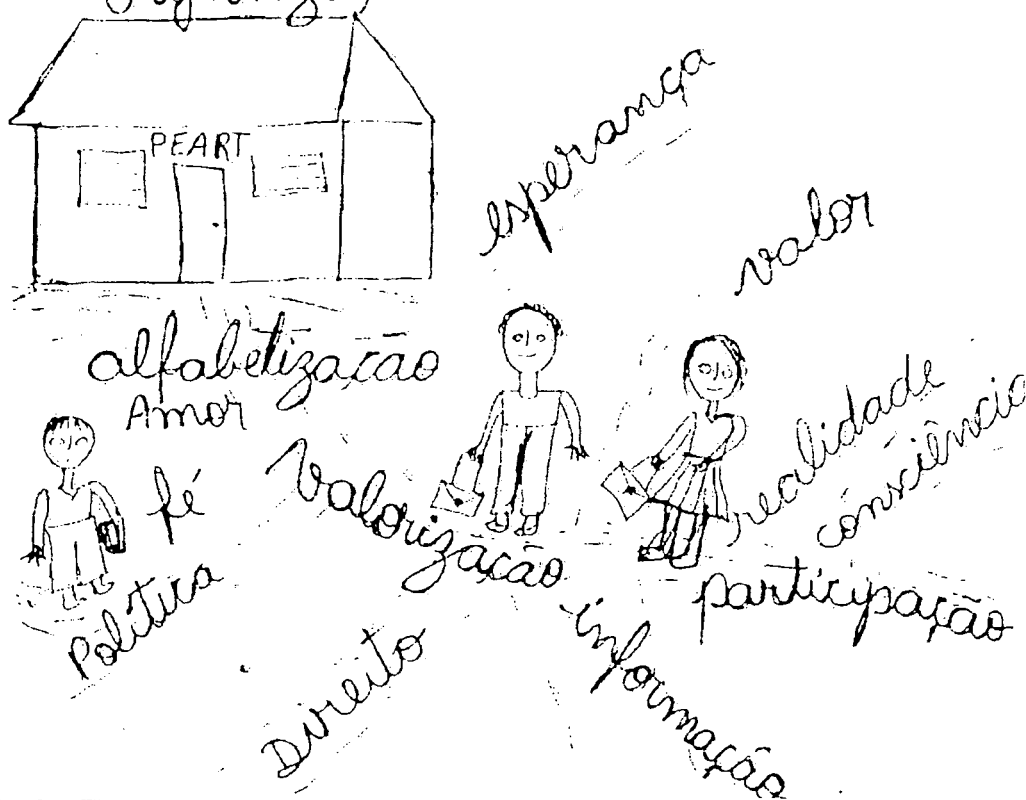 PEART
esperança
valor
alfabetização
Amor
fé
Valorização
realidade
consciência
participação
Política
Direito
informação